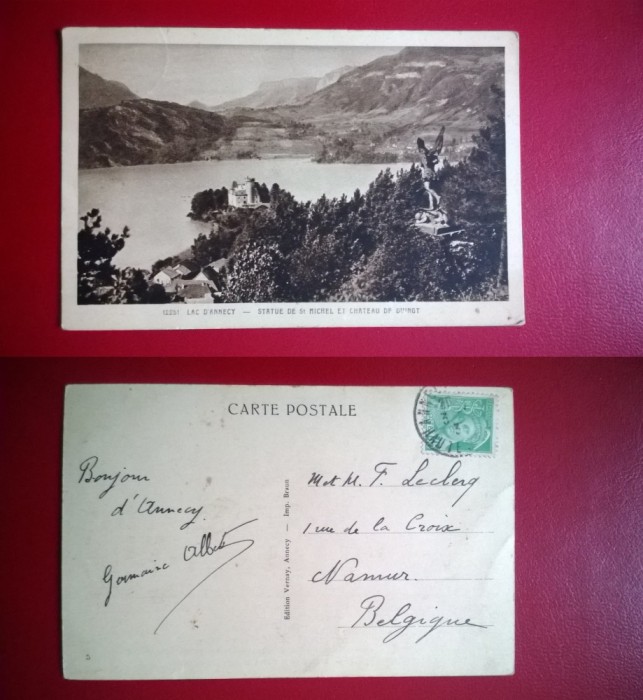 12251 LAC D'ANNECY — STATUE DE St MICHEL ET CHATEAU DE
CARTE POSTALE
Bonjour
d'Annecy
Germaine Albert
Edition Vernay, Annecy — Imp. Braun
M et M. F. Leclerq
1 rue de la Croix
Namur.
Belgique